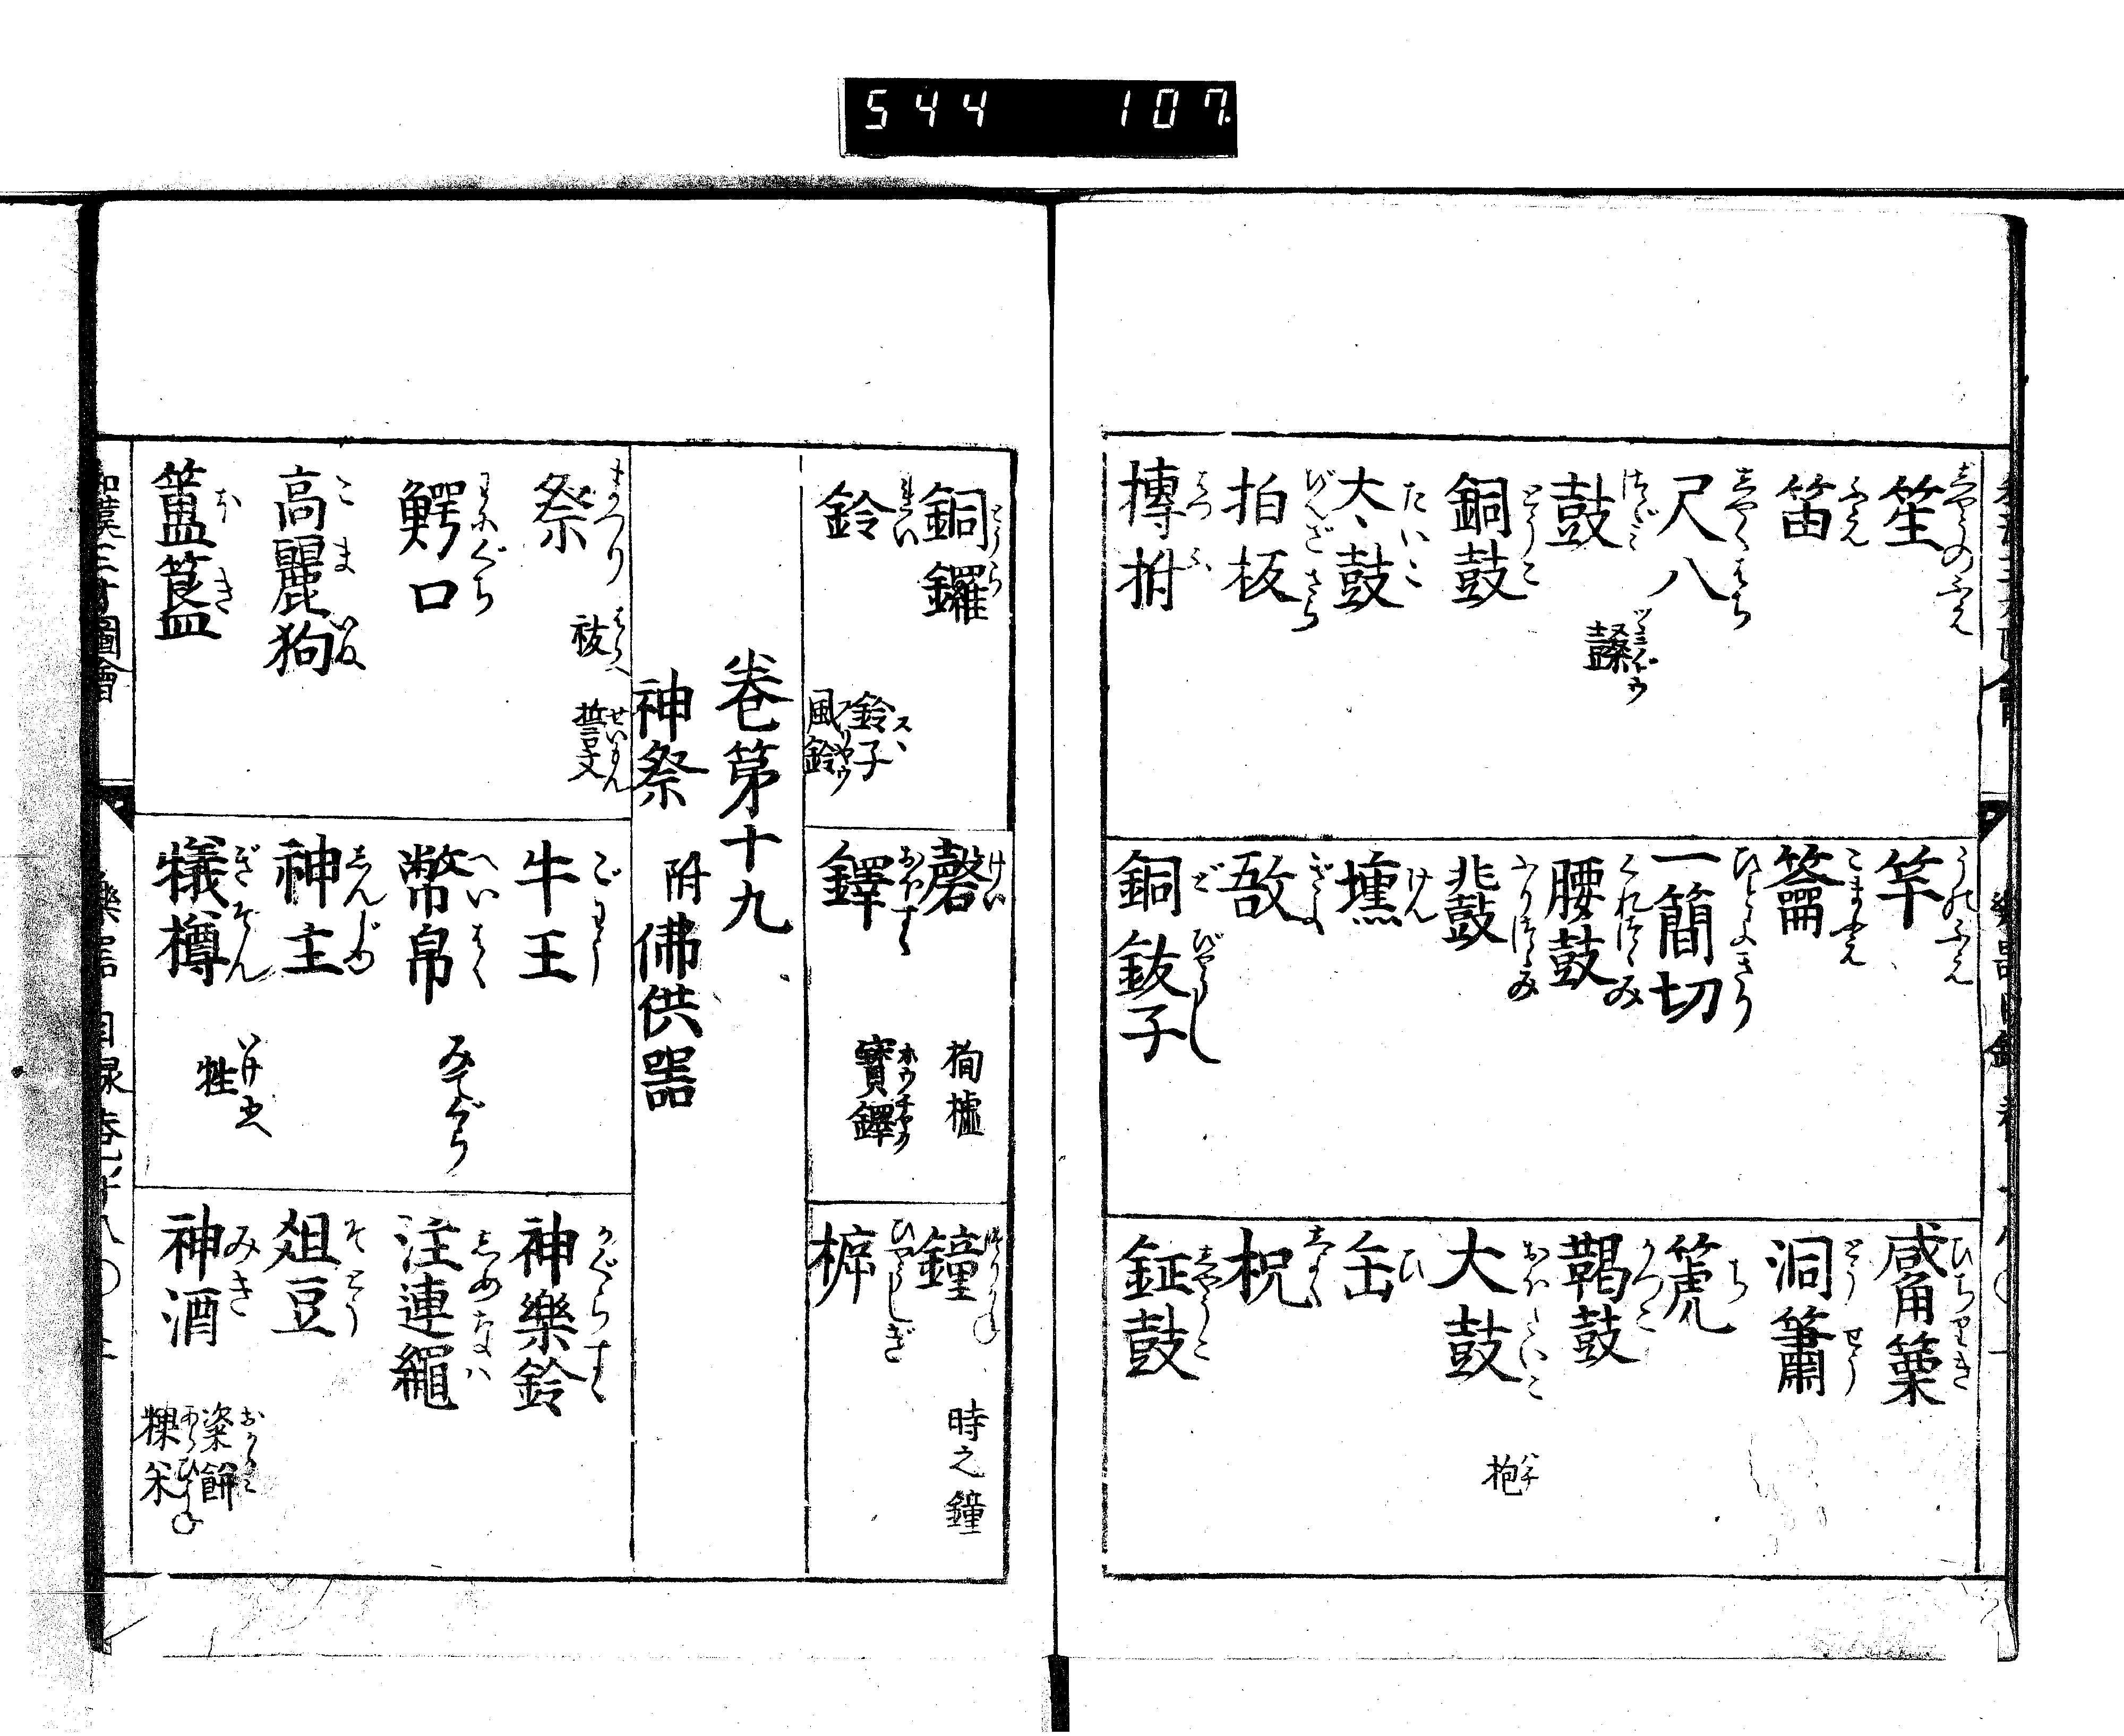 544 107
笙 しやうのふえ
笛 ふえ
尺八 しやくはち
鼓 つゞミ
銅鼓 とうこ
太鼓 たいこ
拍板 びんざさら
搏拊 はつふ
竽 うのふえ
籥 こまふえ
一簡切 ひとよきり
腰鼓 くれつゞみ
鼗 ふりつゞみ
壎 けん
敔 ぎよ
銅鈸子 どびやうし
觱篥 ひちりき
洞簫 とうせう
篪 ち
鞨鼓 かつこ
大鼓 おほたいこ
枹 ハチ
缶 ひ
柷 しゆく
鉦鼓 しやうこ
銅鑼 とうら
鈴 れい
鈴子 スヽ
風鈴 フリヤウ
磬 けい
栒櫨
鐸 おほすゞ
寶鐸 ホウチヤク
鐘 つりかね
時之鐘
㭊 ひやうしぎ
卷第十九
神祭 附 佛供噐
祭 まつり
祓 はらへ
誓文 せいもん
鰐口 わにぐち
高麗狗 こまいぬ
簠簋 ほき
牛王 ごわう
幣帛 へいはく みてぐら
神主 しんじゆ
犠樽 ぎそん
牲 いけにへ
神樂鈴 かぐらすゞ
注連繩 しめなハ
俎豆 そとう
神酒 みき
粢餅
粿米
和漢三才圖會
樂噐 目録 卷之十八 〇 二